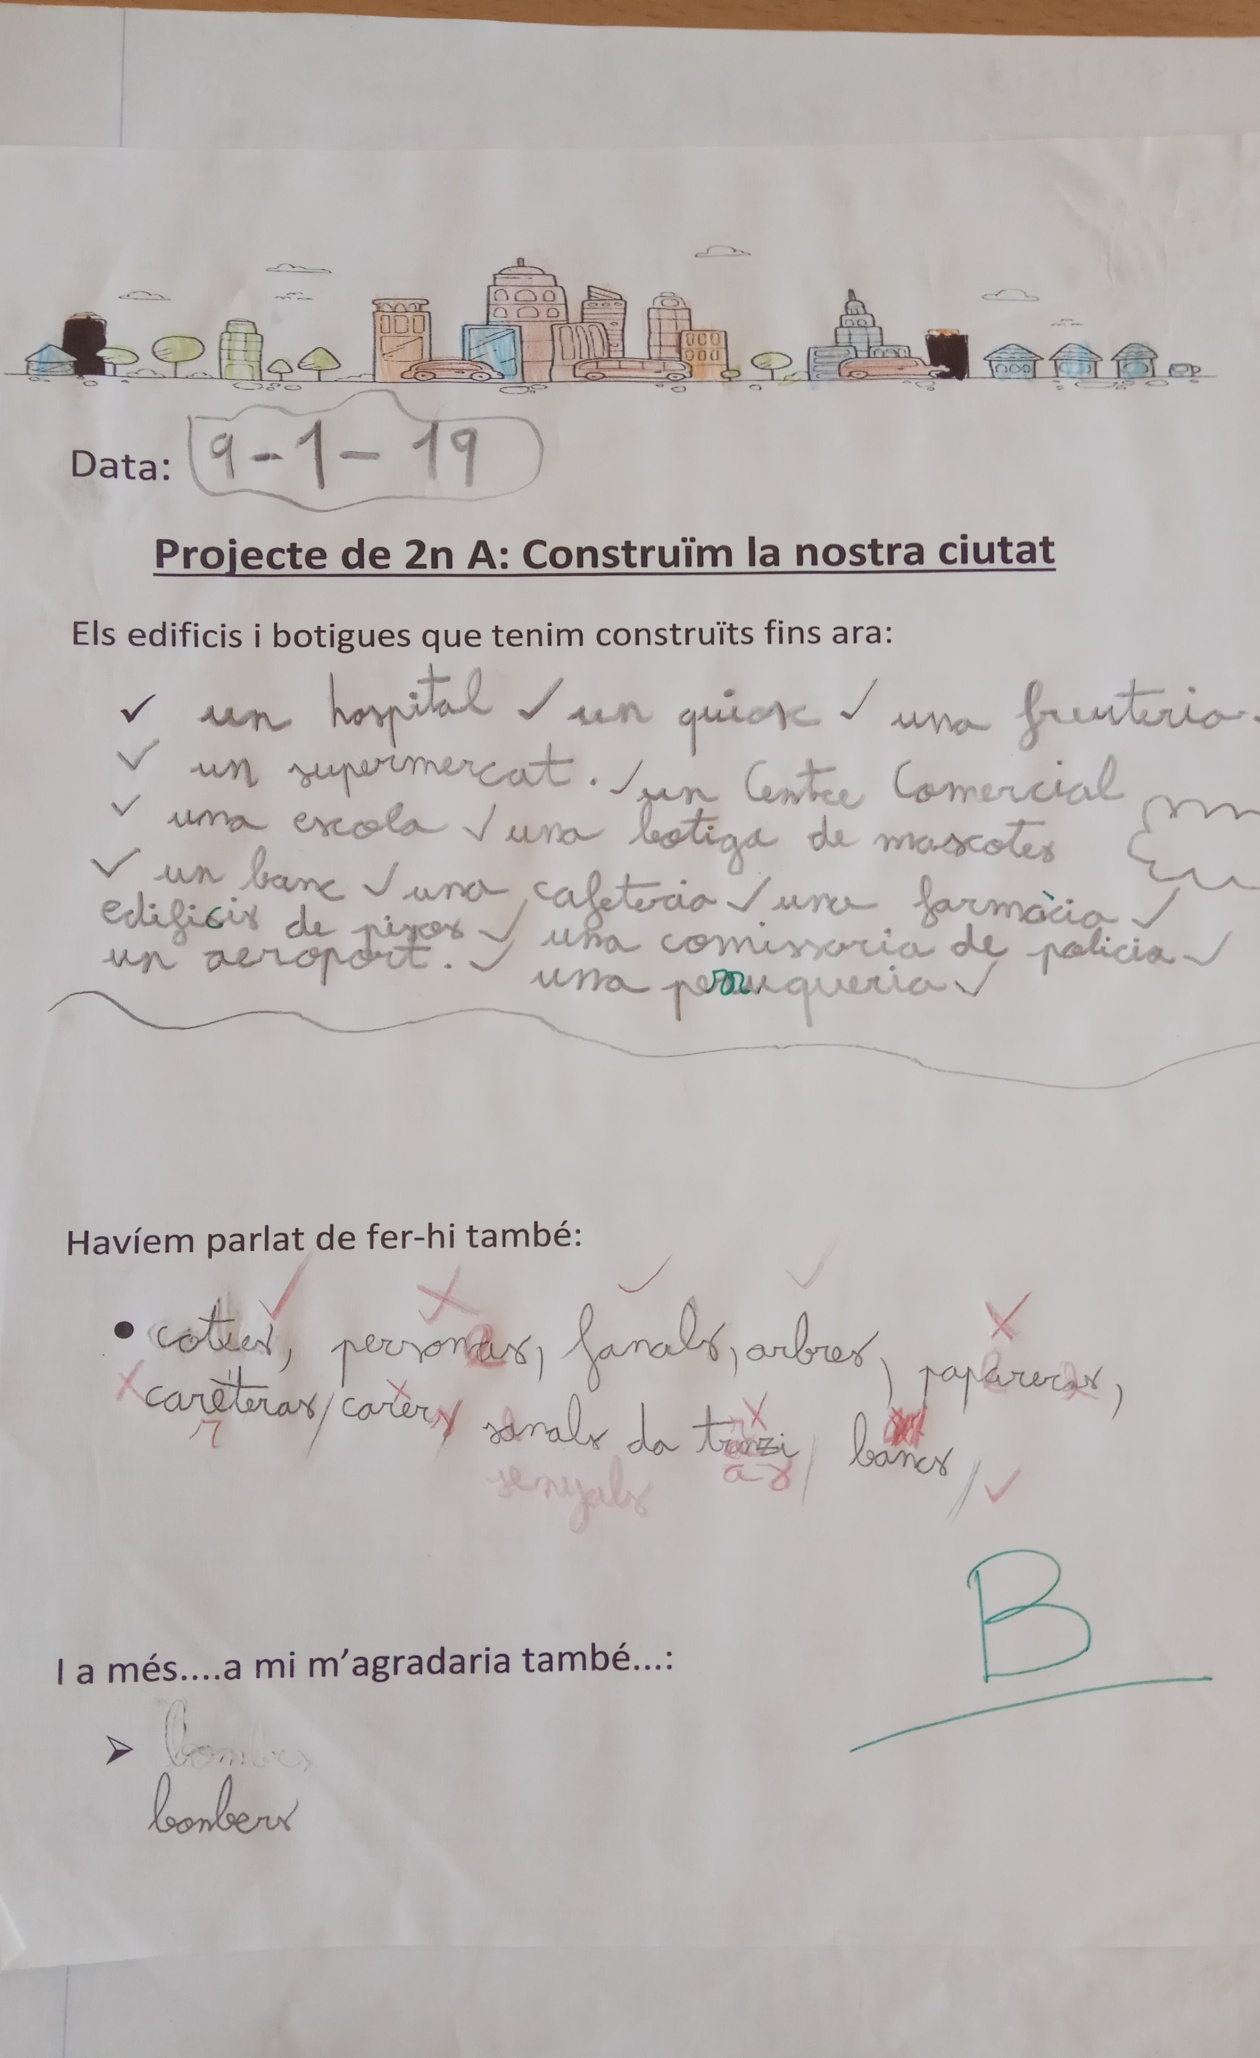 Data: 9-1-19
Projecte de 2n A: Construïm la nostra ciutat
Els edificis i botigues que tenim construïts fins ara:
✓ un hospital ✓ un quiosc ✓ una fruiteria.
✓ un supermercat. ✓ un Centre Comercial
✓ una escola ✓ una botiga de mascotes
✓ un banc ✓ una cafeteria ✓ una farmàcia ✓
edificis de pisos ✓ una comissaria de policia ✓
un aeroport. ✓ una perruqueria ✓
Havíem parlat de fer-hi també:
• cotxes, persones, fanals, arbres,
careteras/carers sanals da
r senyals a s
bancs/
B
I a més....a mi m'agradaria també...:
➢ bombers
bonbers